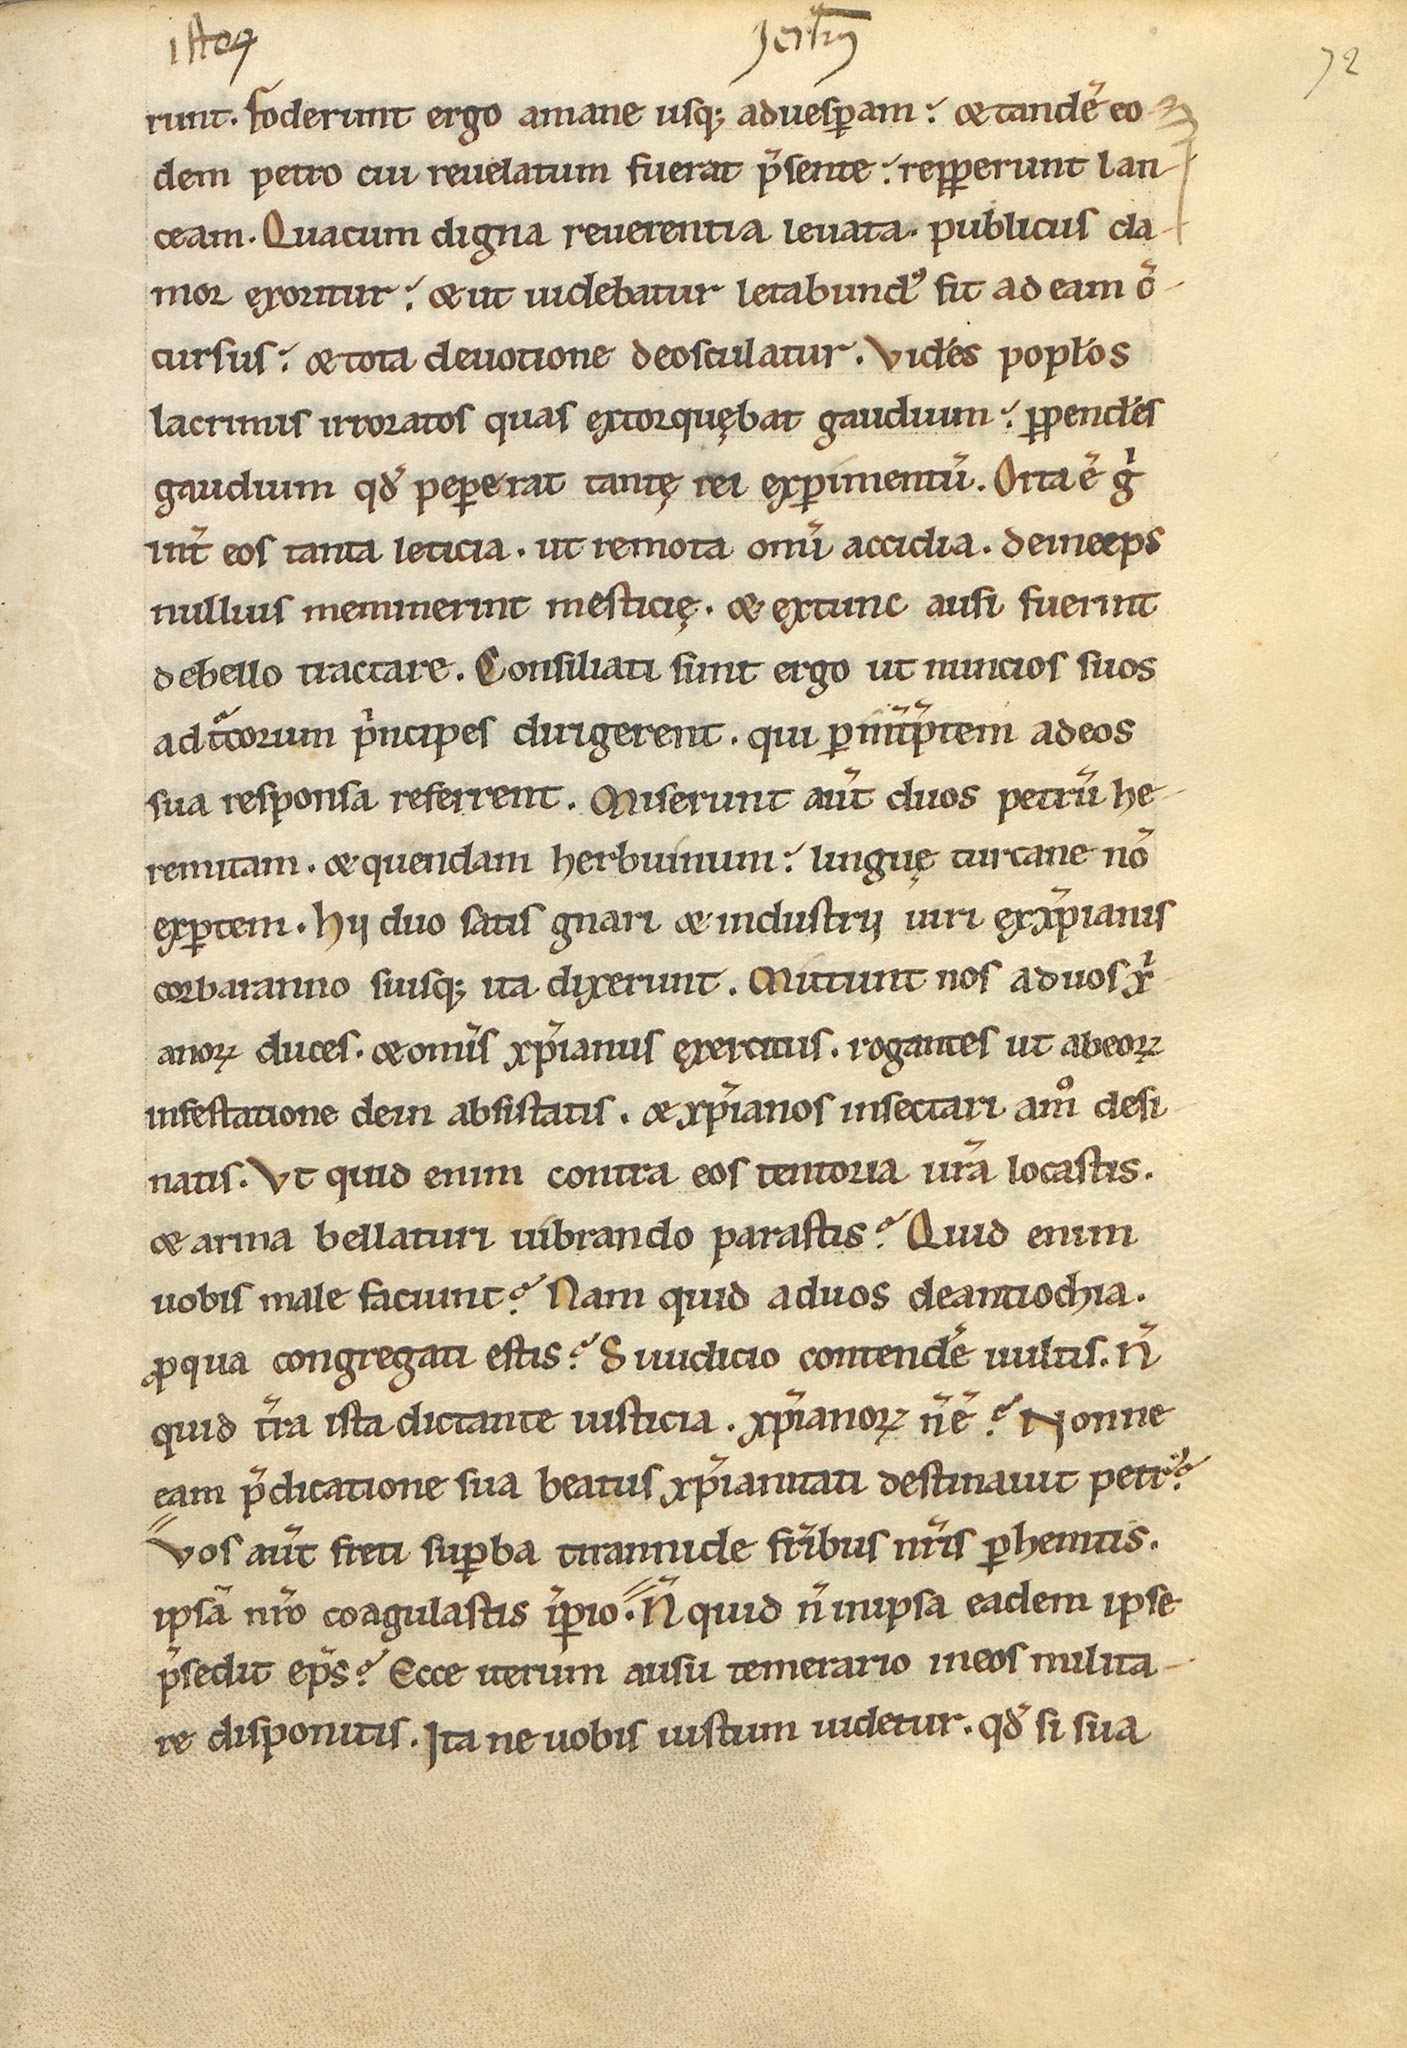 72
runt. Foderunt ergo amane usq; aduesꝑam: & tandē eo-
dem petro cui reuelatum fuerat p̄sente: repꝑerunt lan-
ceam. Quacum digna reuerentia leuata. publicus cla-
mor exoritur: & ut uidebatur letabundꝰ fit ad eam ↄ̄-
cursus: & tota deuotione deosculatur. Vidēs popłos
lacrimis irroratos quas extorquębat gaudium: ꝑpendēs
gaudium qd̄ peꝑerat tantę rei exꝑimentū. Orta ē gͥ
int̄ eos tanta leticia. ut remota om̄i accidia. deinceps
nullius meminerint mesticię. & extunc ausi fuerint
debello tractare. Consiliati sunt ergo ut nuncios suos
ad tͨcorum pͥncipes dirigerent. qui ꝑ int̄p̄tem adeos
sua responsa referrent. Miserunt aūt duos petrū he-
remitam. & quendam herbuinum: linguę turcane nō
exꝑtem. Hij duo satis gnari & industrij uiri ex xp̄ianis
corbaranno suisq; ita dixerunt. Mittunt nos aduos xͥ-
anoꝝ duces. & om̄is xp̄ianus exercitus. rogantes ut abeoꝝ
infestatione dein absistatis. & xp̄ianos insectari am̊ desi-
natis. Vt quid enim contra eos tentoria ur̄a locastis.
& arma bellaturi uibrando parastis? Quid enim
uobis male faciunt? Nam quid aduos deantiochia.
ꝓqua congregati estis? Si iudicio contendē uultis. n̄
quid t̄ra ista dictante iusticia. xp̄ianoꝝ n̄ ē? Nonne
eam p̄dicatione sua beatus xp̄ianitati destinauit petrꝰ?
Vos aūt freti suꝑba tirannide fr̄ibus nr̄is ꝑhemtis.
ipsā nr̄o coagulastis īꝑio. N̄ quid n̄ inipsa eadem ipse
p̄sedit ep̄s? Ecce iterum ausu temerario ineos milita-
re disponitis. Ita ne uobis iustum uidetur. qd̄ si sua